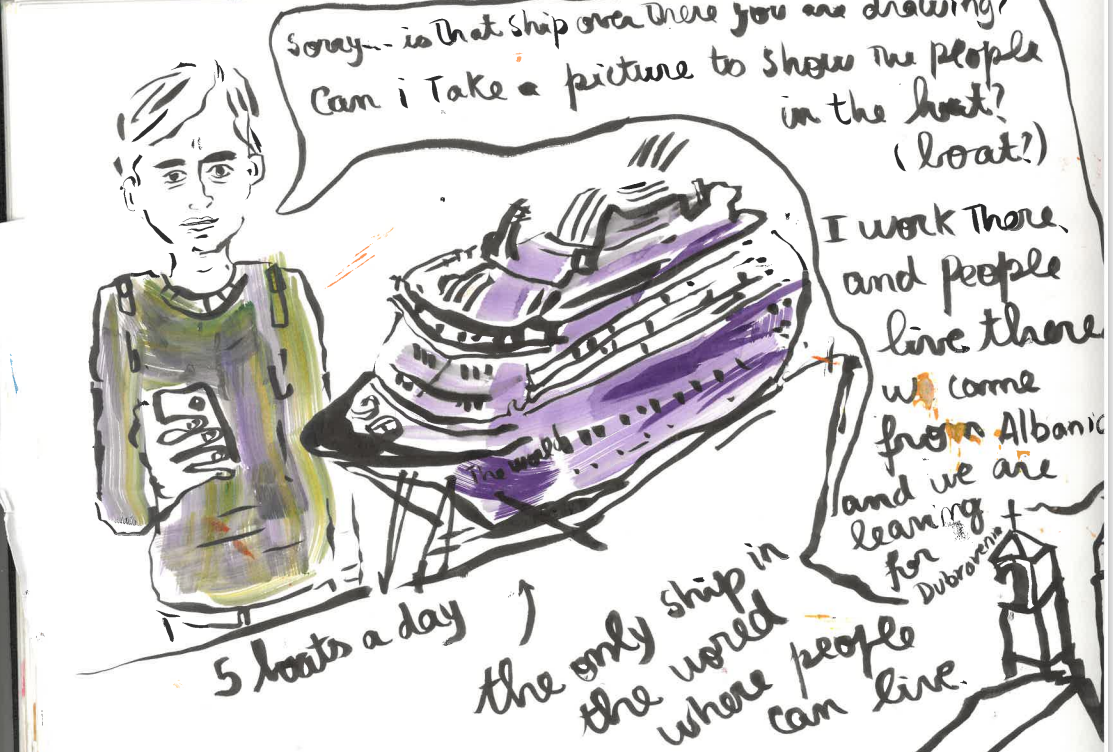 Sorry... is that ship over there you are drawing?
Can i Take a picture to show the people
in the boat?
(boat?)
I work There,
and people
live there
we came
from Albania
and we are
leaving
for
The world
5 boats a day
the only ship in
the world
where people
can live.